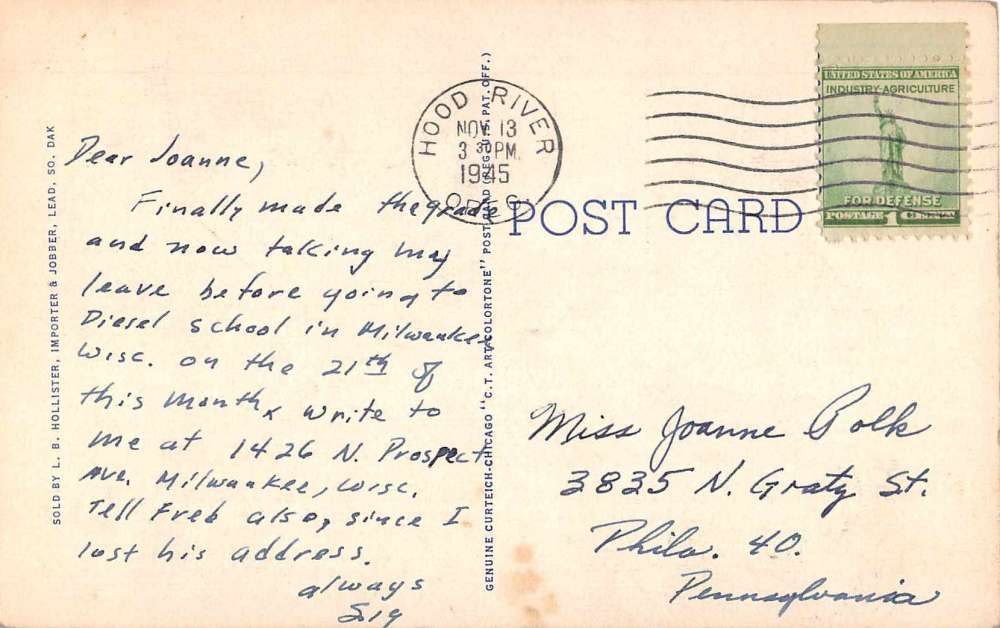 SOLD BY L. B. HOLLISTER, IMPORTER & JOBBER, LEAD, SO. DAK
Dear Joanne,
Finally made the grade
and now taking my
leave before going to
Diesel school in Milwaukee
Wisc. on the 21th of
this month, write to
me at 1426 N. Prospect
Ave. Milwaukee, Wisc.
Tell Freb also, since I
lost his address.
always
Sig
GENUINE CURTEICH-CHICAGO "C.T. ART-COLORTONE" POST CARD (REG. U.S. PAT. OFF.)
HOOD RIVER
NOV 13
3 30 PM
1945
OREG.
POST CARD
UNITED STATES OF AMERICA
INDUSTRY-AGRICULTURE
FOR DEFENSE
POSTAGE 1 CENT
Miss Joanne Polk
3835 N. Gratz St.
Phila. 40.
Pennsylvania